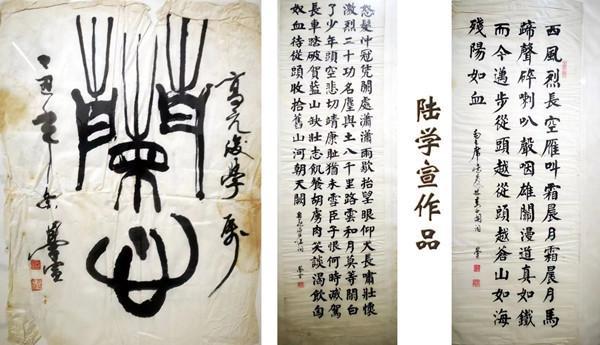 怒髮冲冠凭闌處瀟瀟雨歇抬望眼仰天長嘯壯懷
激烈三十功名塵與土八千里路雲和月莫等閑白
了少年頭空悲切靖康耻猶未雪臣子恨何時滅駕
長車踏破賀蘭山缺壯志飢餐胡虜肉笑談渴飲匈
奴血待從頭收拾舊山河朝天闕
陆学宣作品
西風烈長空雁叫霜晨月霜晨月馬
蹄聲碎喇叭聲咽雄關漫道真如鐵
而今邁步從頭越從頭越蒼山如海
殘陽如血